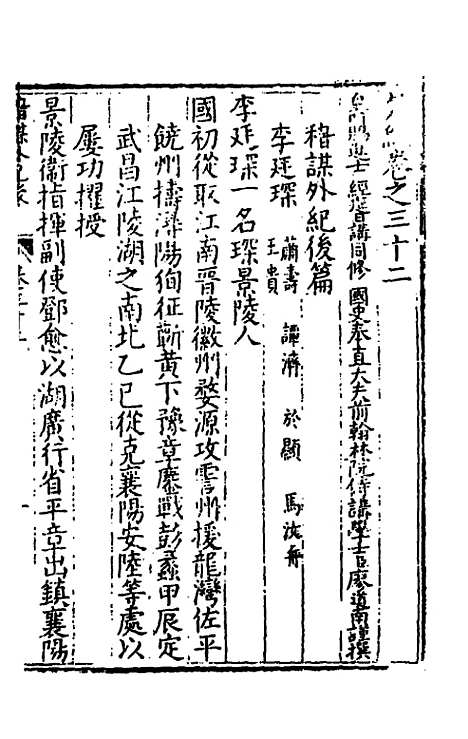 卷之三十二
經筵日講同修 國史奉直大夫前翰林院侍講學士臣廖道南謹撰
稽謀外紀後篇
李廷琛 蕭壽 王貴 譚濟 於顯 馬
李廷琛一名琛景陵人
國初從取江南晉陵徽州婺源攻雩州援龍灣佐平
饒州擣潯陽徇征蘄黃下豫章鏖戰彭蠡甲辰定
武昌江陵湖之南北乙巳從克襄陽安陸等處以
屢功擢授
景陵衛指揮副使鄧愈以湖廣行省平章出鎮襄陽